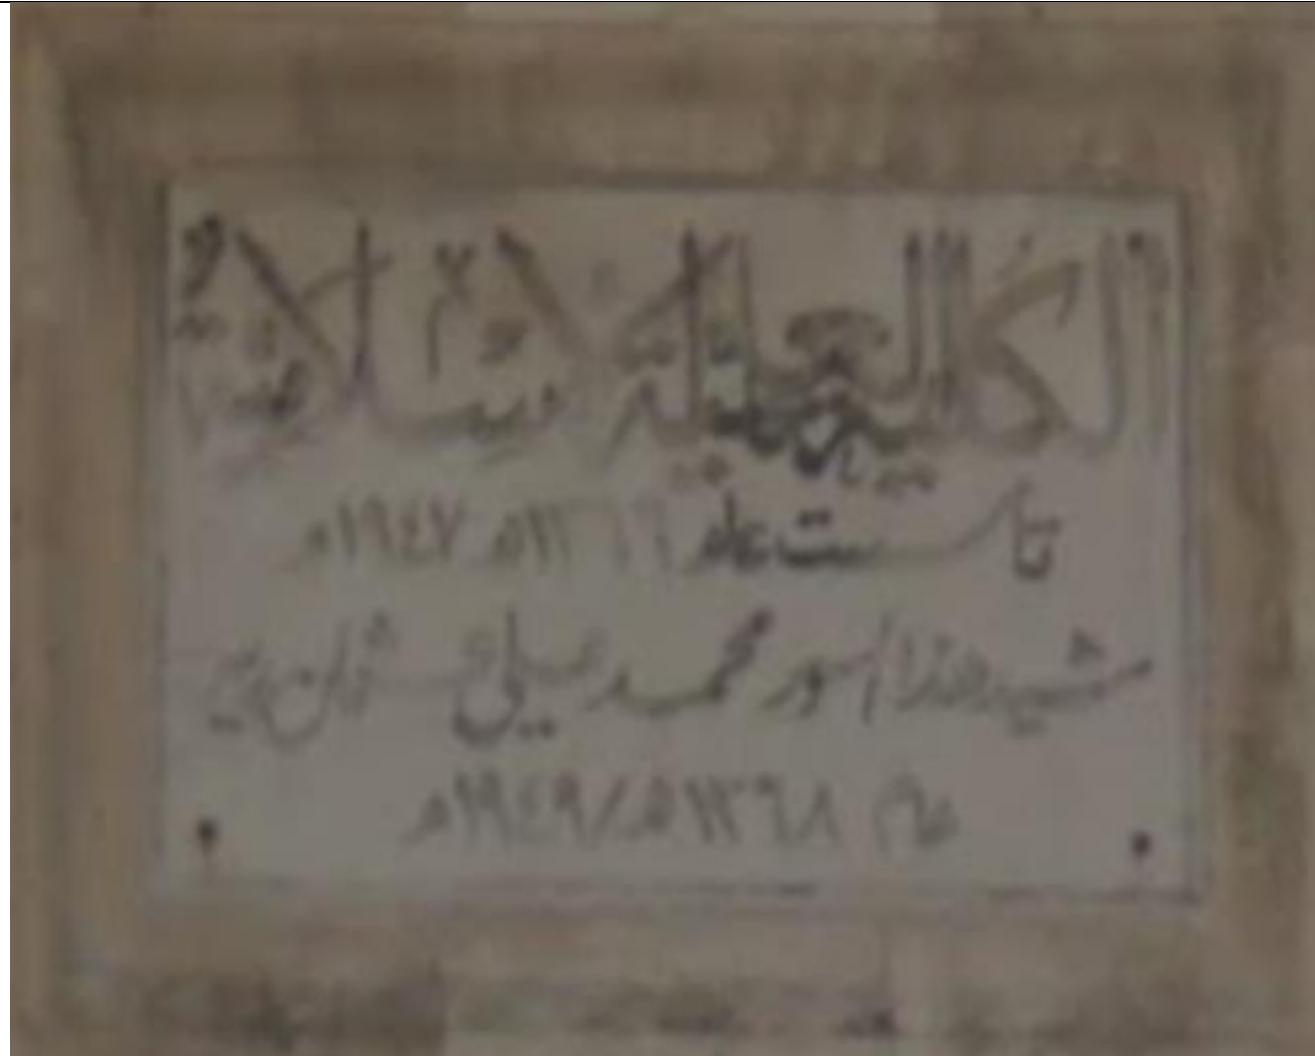 الكلية العلمية الإسلامية
تأسست عام ١٣٦٦هـ ١٩٤٧م
شيد هذا السور محمد علي
عام ١٣٦٨هـ/١٩٤٩م